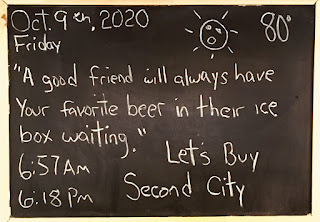 Oct. 9th, 2020
80°
Friday
"A good friend will always have
Your favorite beer in their ice
box waiting."
6:57 AM
Let's Buy
6:18 Pm
Second City